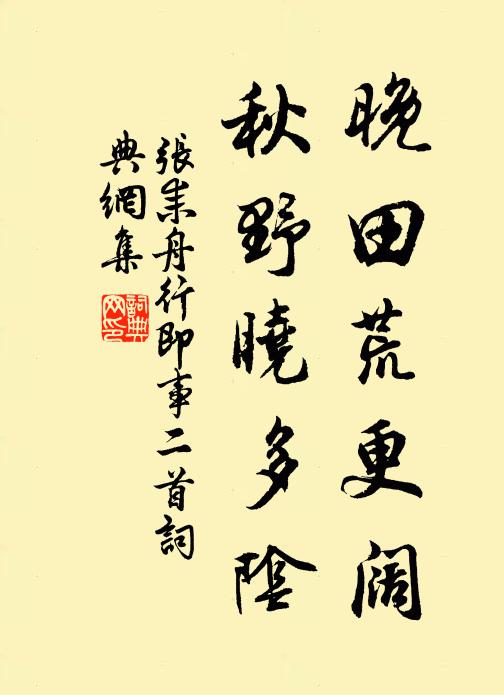 晚田荒更阔
秋野曉多陰
張耒舟行即事二首詞
典網集
詞典
网印